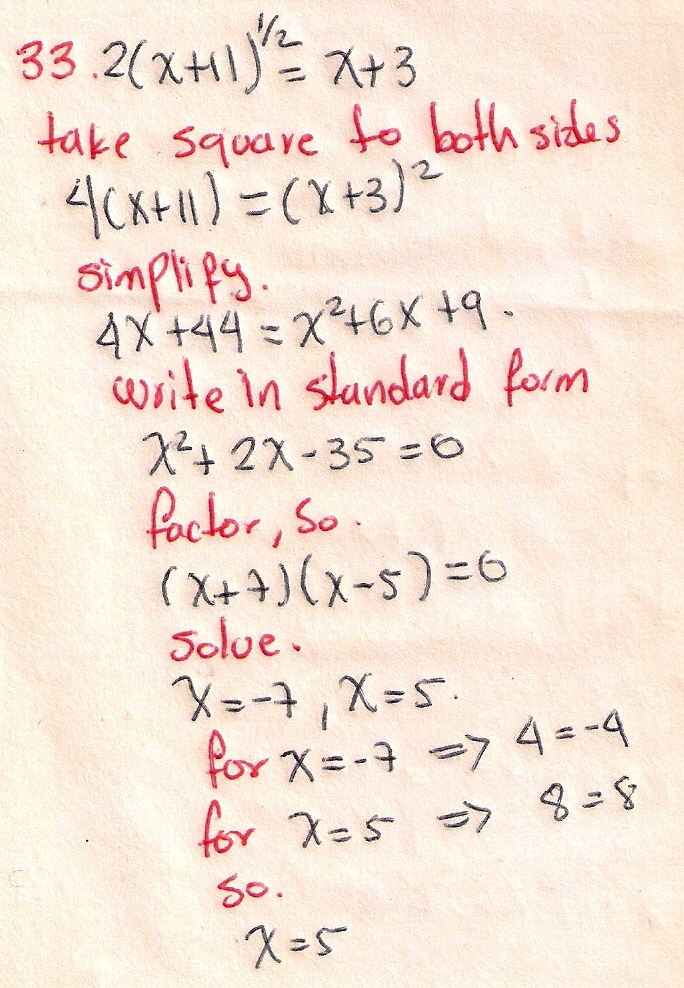 33. 2(x+11)^1/2 = x+3
take square to both sides
4(x+11) = (x+3)^2
simplify.
4x+44 = x^2+6x+9.
write in standard form
x^2+2x-35=0
factor, so.
(x+7)(x-5)=0
solve.
x=-7, x=5.
for x=-7 => 4=-4
for x=5 => 8=8
so.
x=5